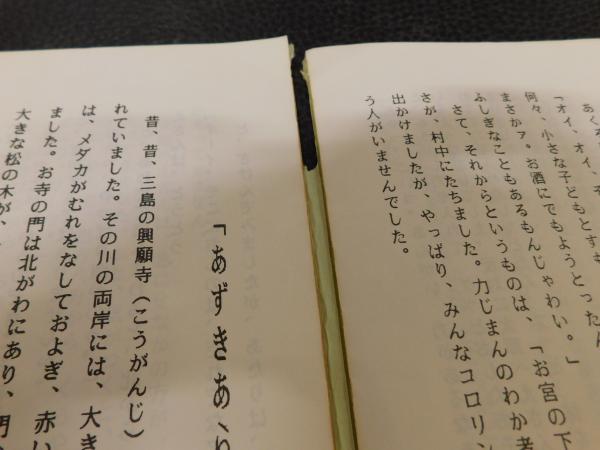 あくる
「オイ、オイ、そ
何々、小さな子どもとすも
まさかァ。お酒にでもようとったん
ふしぎなこともあるもんじゃわい。」
さて、それからというものは、「お宮の下
さが、村中にたちました。力じまんのわか者
出かけましたが、やっぱり、みんなコロリン
う人がいませんでした。
「あずきあ、り
昔、昔、三島の興願寺（こうがんじ）
れていました。その川の両岸には、大き
は、メダカがむれをなしておよぎ、赤い
ました。お寺の門は北がわにあり、門
大きな松の木が、